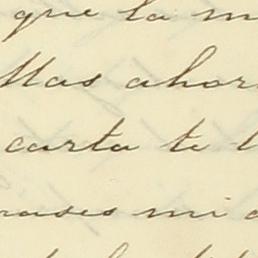 que la m
llas ahor
carta te l
rases mi a